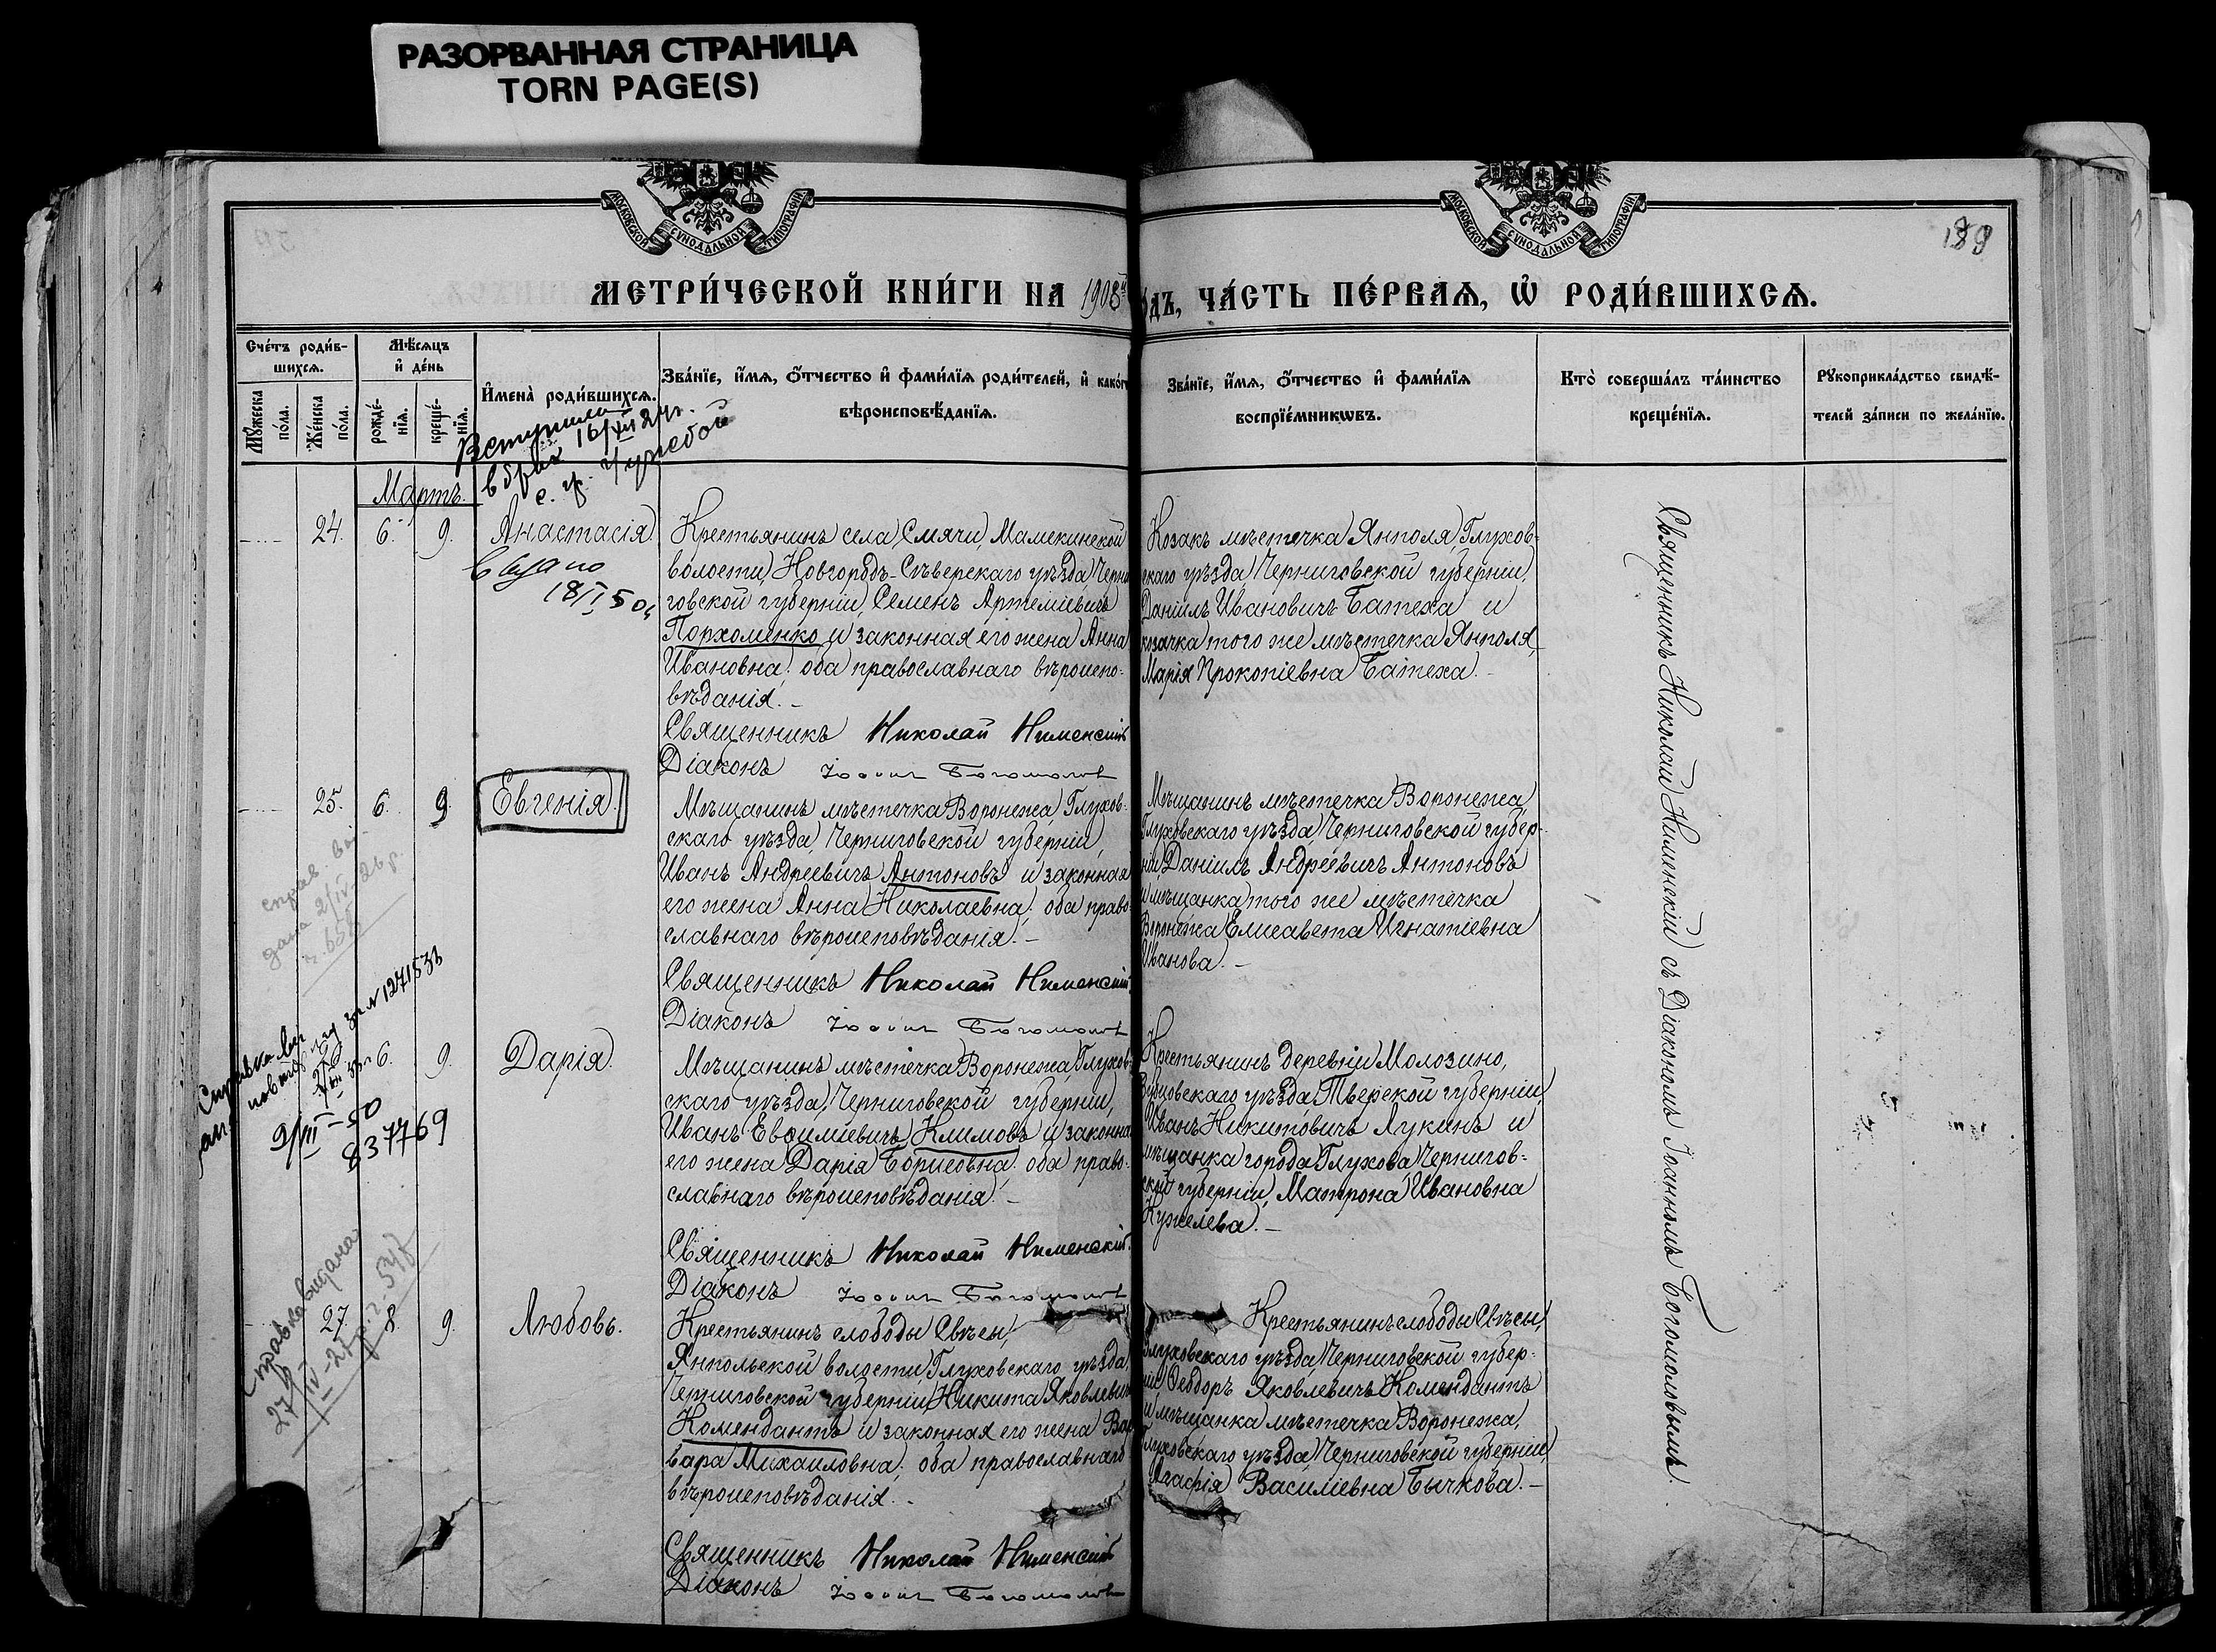 РАЗОРВАННАЯ СТРАНИЦА
TORN PAGE(S)
МОСКОВСКОЙ СѴНОДАЛЬНОЙ ТИПОГРАФІИ
МОСКОВСКОЙ СѴНОДАЛЬНОЙ ТИПОГРАФІИ
189
МЕТРИ́ЧЕСКОЙ КНИ́ГИ НА 1908й
ДЪ, ЧА́СТЬ ПЕ́РВАѦ, Ѡ҆ РОДИ́ВШИХСѦ.
Сче́тъ роди́в-
шихсѧ.
Мꙋ́жеска по́ла.
Же́нска по́ла.
Мѣ́сѧцъ
и҆ де́нь
рожде́-
нїѧ.
креще́-
нїѧ.
И҆мена̀ роди́вшихсѧ.
Зва́нїе, и҆́мѧ, ѻ҆́тчество и҆ фами́лїѧ роди́телей, и҆ како́г
вѣроисповѣ́данїѧ.
Зва́нїе, и҆́мѧ, ѻ҆́тчество и҆ фами́лїѧ
воспрїе́мникѡвъ.
Кто̀ соверша́лъ та́инство
креще́нїѧ.
Рꙋкоприкла́дство свидѣ́-
телей за́писи по жела́нїю.
Вступила
в брак 16/XII 24 г.
с. гр.
Мартъ.
24. 6. 9. Анастасія.
Видано
18/I 50
Крестьянинъ села Смячи, Мамекинской
волости, Новгородъ-Сѣверскаго уѣзда, Черни
говской губерніи, Семенъ Артеміевичъ
Порхоменко и законная его жена Анна
Ивановна; оба православнаго вѣроиспо-
вѣданія. –
Священникъ Николай Нименскій
Діаконъ Іоаннъ Богомоловъ
Козакъ мѣстечка Янполя, Глухов-
скаго уѣзда, Черниговской губерніи,
Даніилъ Ивановичъ Батеха и
козачка того же мѣстечка Янполя,
Марія Прокопіевна Батеха. –
25. 6. 9. Евгенія.
Мѣщанинъ мѣстечка Воронежа, Глухов-
скаго уѣзда, Черниговской губерніи,
Иванъ Андреевичъ Антоновъ и законная
его жена Анна Николаевна; оба право-
славнаго вѣроисповѣданія. –
Священникъ Николай Нименскій
Діаконъ Іоаннъ Богомоловъ
Мѣщанинъ мѣстечка Воронежа,
Глуховскаго уѣзда, Черниговской губер-
ніи, Даніилъ Андреевичъ Антоновъ
и мѣщанка того же мѣстечка
Воронежа Елисавета Игнатіевна
Иванова. –
дана 2/IV-26 р.
1271533
9/III-50
837769
6. 9. Дарія.
Мѣщанинъ мѣстечка Воронежа, Глухов-
скаго уѣзда, Черниговской губерніи,
Иванъ Евѳиміевичъ Климовъ и законна
его жена Дарія Борисовна; оба право-
славнаго вѣроисповѣданія. –
Священникъ Николай Нименскій
Діаконъ Іоаннъ Богомоловъ
Крестьянинъ деревни Молозино,
Зубцовскаго уѣзда, Тверской губерніи,
Иванъ Никитовичъ Лукинъ и
мѣщанка города Глухова Чернигов-
ской губерніи, Матрона Ивановна
Кужелева. –
Справка видана
27. 8. 9. Любовь.
Крестьянинъ слободы Свѣсы,
Янпольской волости, Глуховскаго уѣзда,
Черниговской губерніи, Никита Яковлевич
Комендантъ и законная его жена Вар
вара Михаиловна; оба православнаго
вѣроисповѣданія. –
Священникъ Николай Нименскій
Діаконъ Іоаннъ Богомоловъ
Крестьянинъ слободы Свѣсы,
Глуховскаго уѣзда, Черниговской губер-
ніи, Ѳеодоръ Яковлевичъ Комендантъ
и мѣщанка мѣстечка Воронежа,
Глуховскаго уѣзда, Черниговской губерніи,
Агафія Василіевна Бычкова. –
Священникъ Николай Нименскій съ Діакономъ Іоанномъ Богомоловымъ.